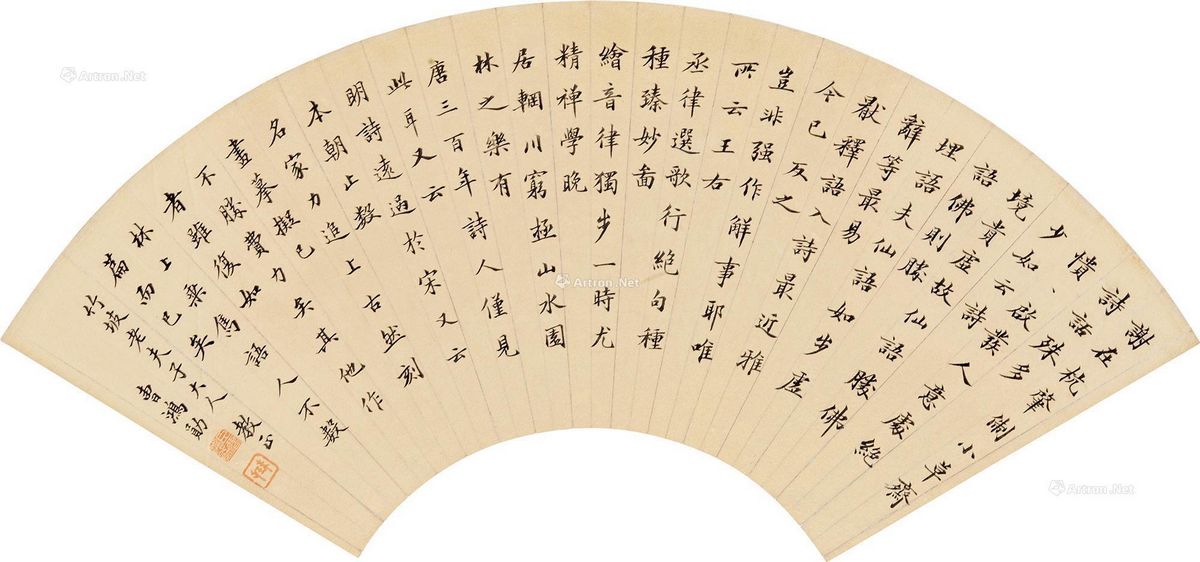 謝在杭肇淛小草齋
詩話殊多
憒、啟發人意處絕
少如云詩
境貴虛故仙語勝佛
語佛則勝
埋語夫仙語如步虛
辭等最易
厭釋語入詩最近雅
今已反之
豈非强作解事耶唯
所云王右
丞律選歌行絕句種
種臻妙啚
繪音律獨步一時尤
精禅學晚
居輞川窮極山水園
林之樂有
唐三百年詩人僅見
此耳又云
明詩遠過於宋又云
本朝止數
名家力追上古然刻
畫摹擬已
不勝費力矣其他作
者雖復如
林上乘焉語人不數
篇而已矣
竹坡老夫子大人教正
曹鴻勛